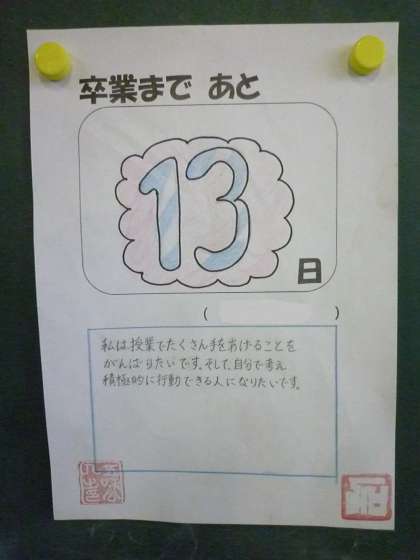 卒業まで あと
13
日
(　　　)
私は授業でたくさん手をあげることを
がんばりたいです。そして、自分で考え
積極的に行動できる人になりたいです。